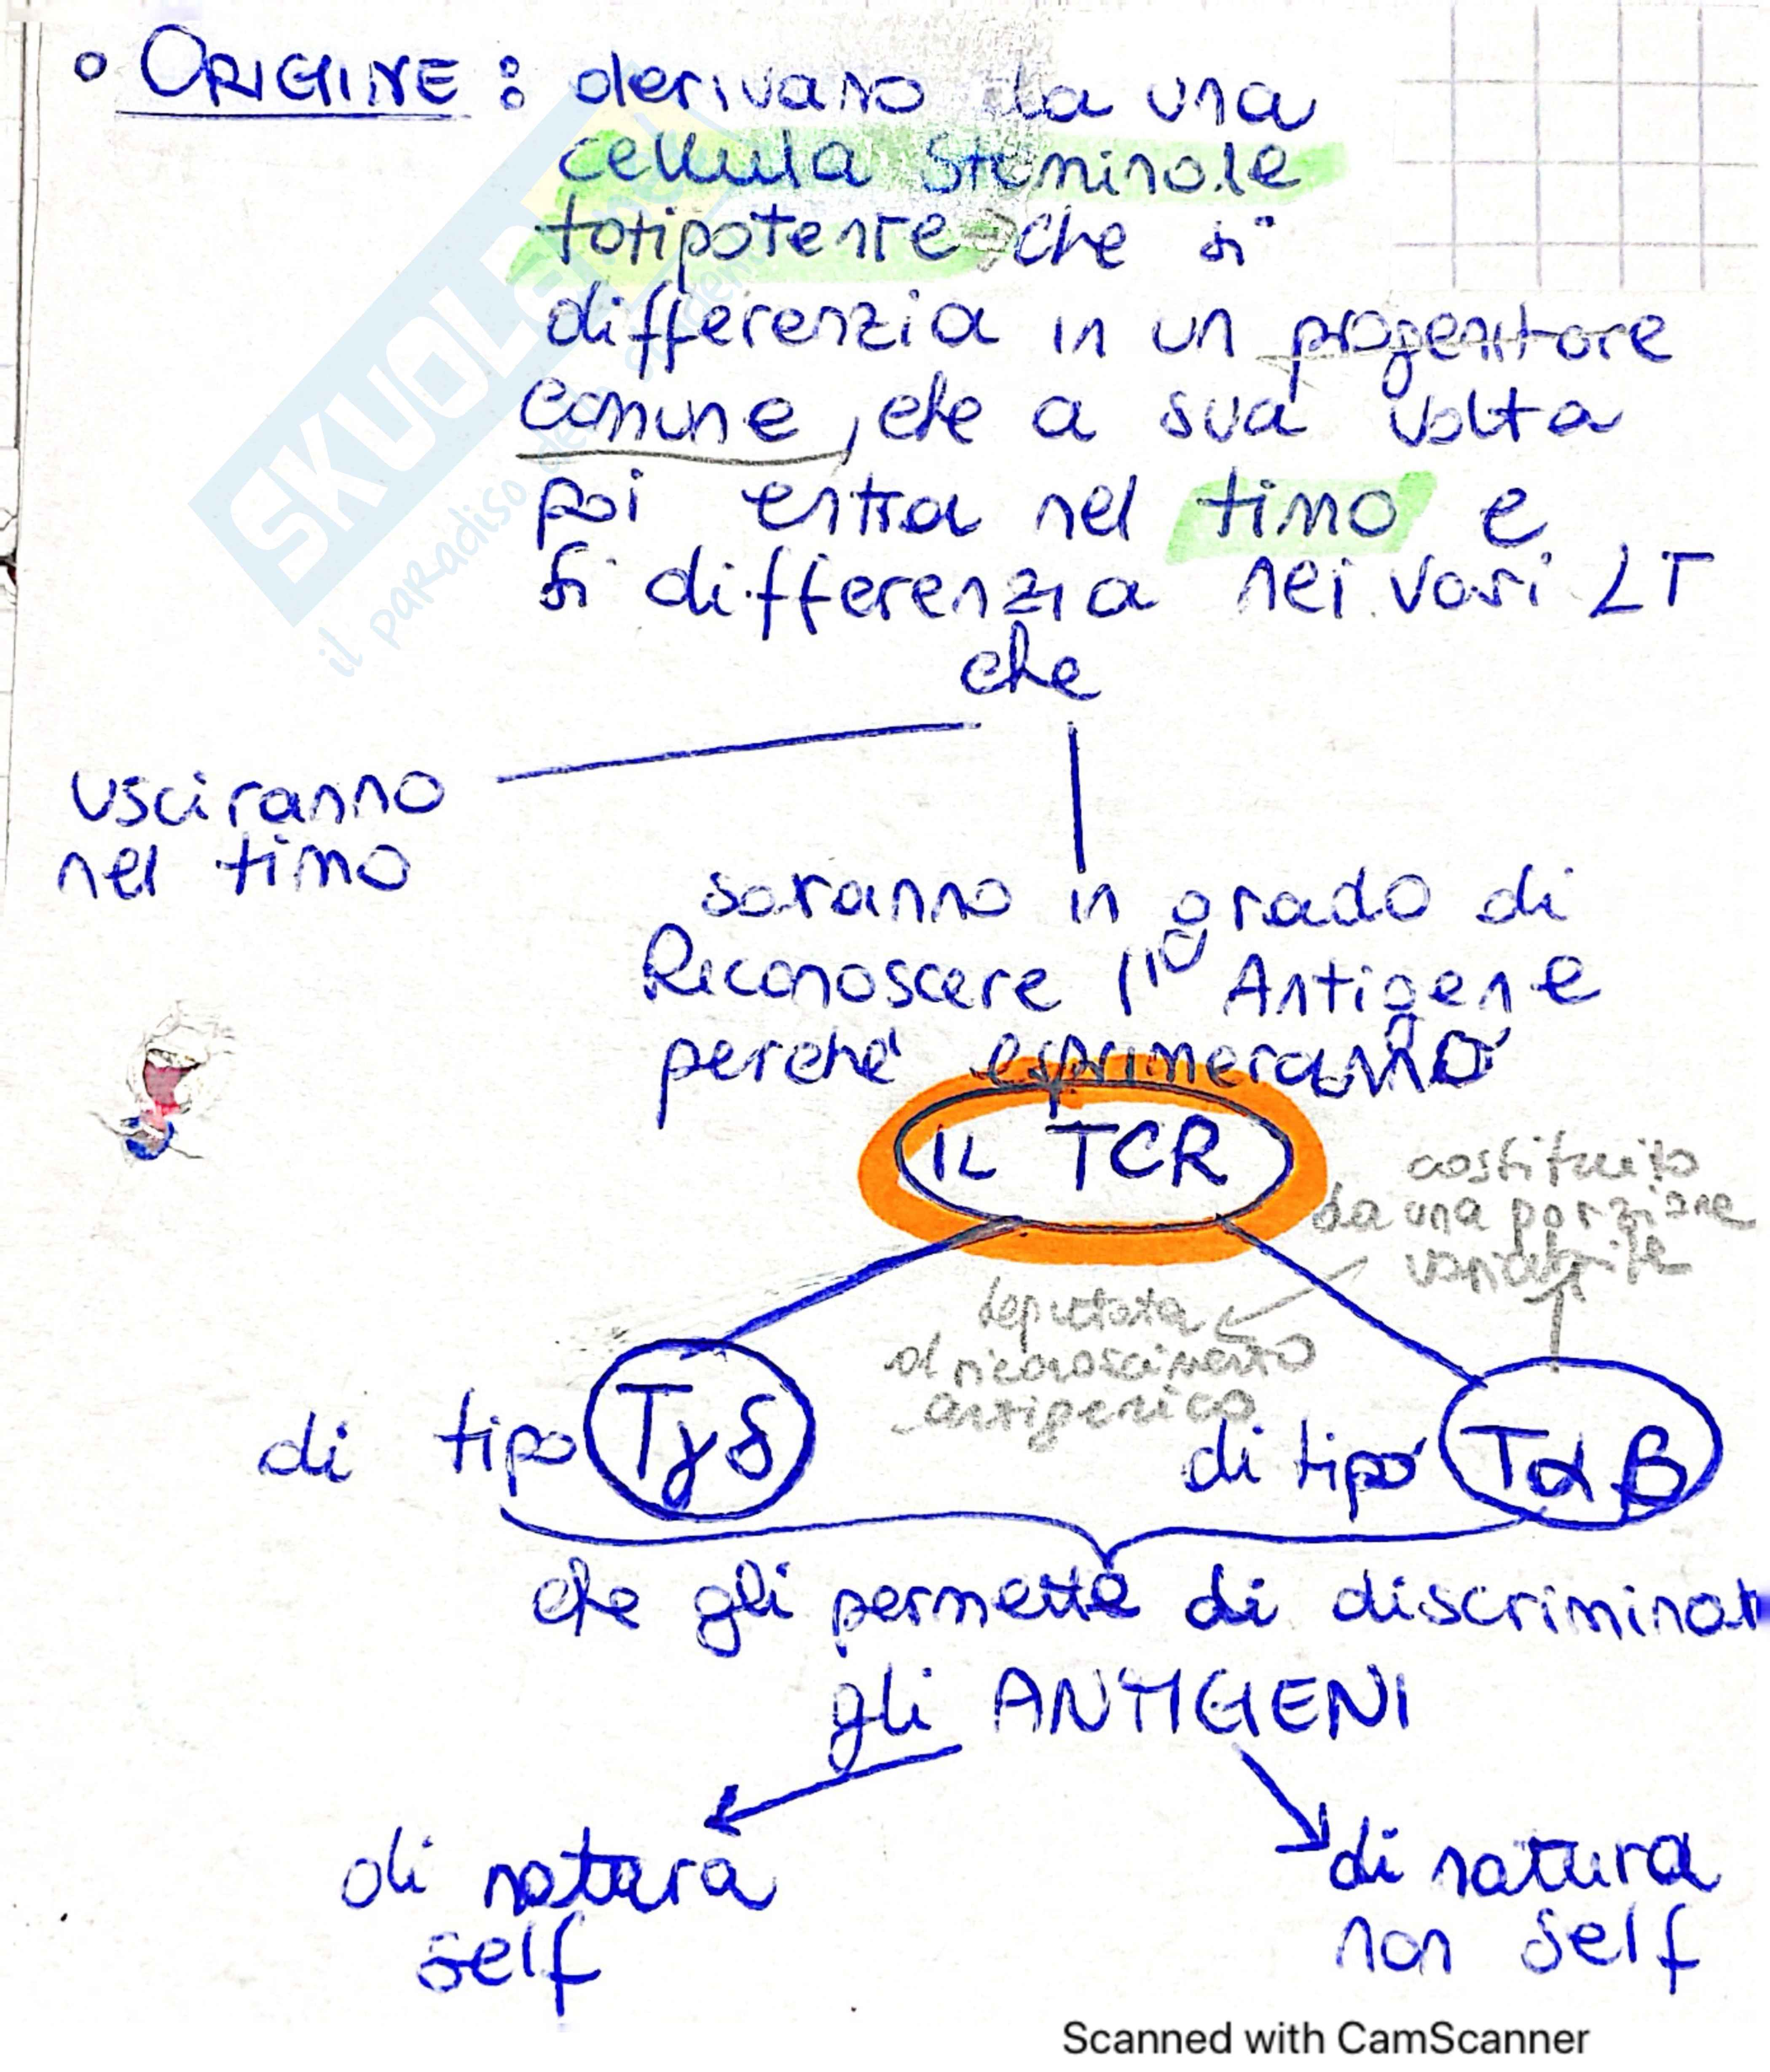 ° ORIGINE : derivano da una
cellula staminale
totipotente che si
differenzia in un progenitore
comune, che a sua volta
poi entra nel timo e
si differenzia nei vari LT
che
usciranno
nel timo
saranno in grado di
Riconoscere l' Antigene
perché esprimeranno
IL TCR
costituito
da una porzione
variabile
deputata
al riconoscimento
antigenico
di tipo Tγδ
di tipo Tαβ
che gli permette di discriminar
gli ANTIGENI
di natura
self
di natura
non self
SKUOLA.net
il paradiso dello studente
Scanned with CamScanner